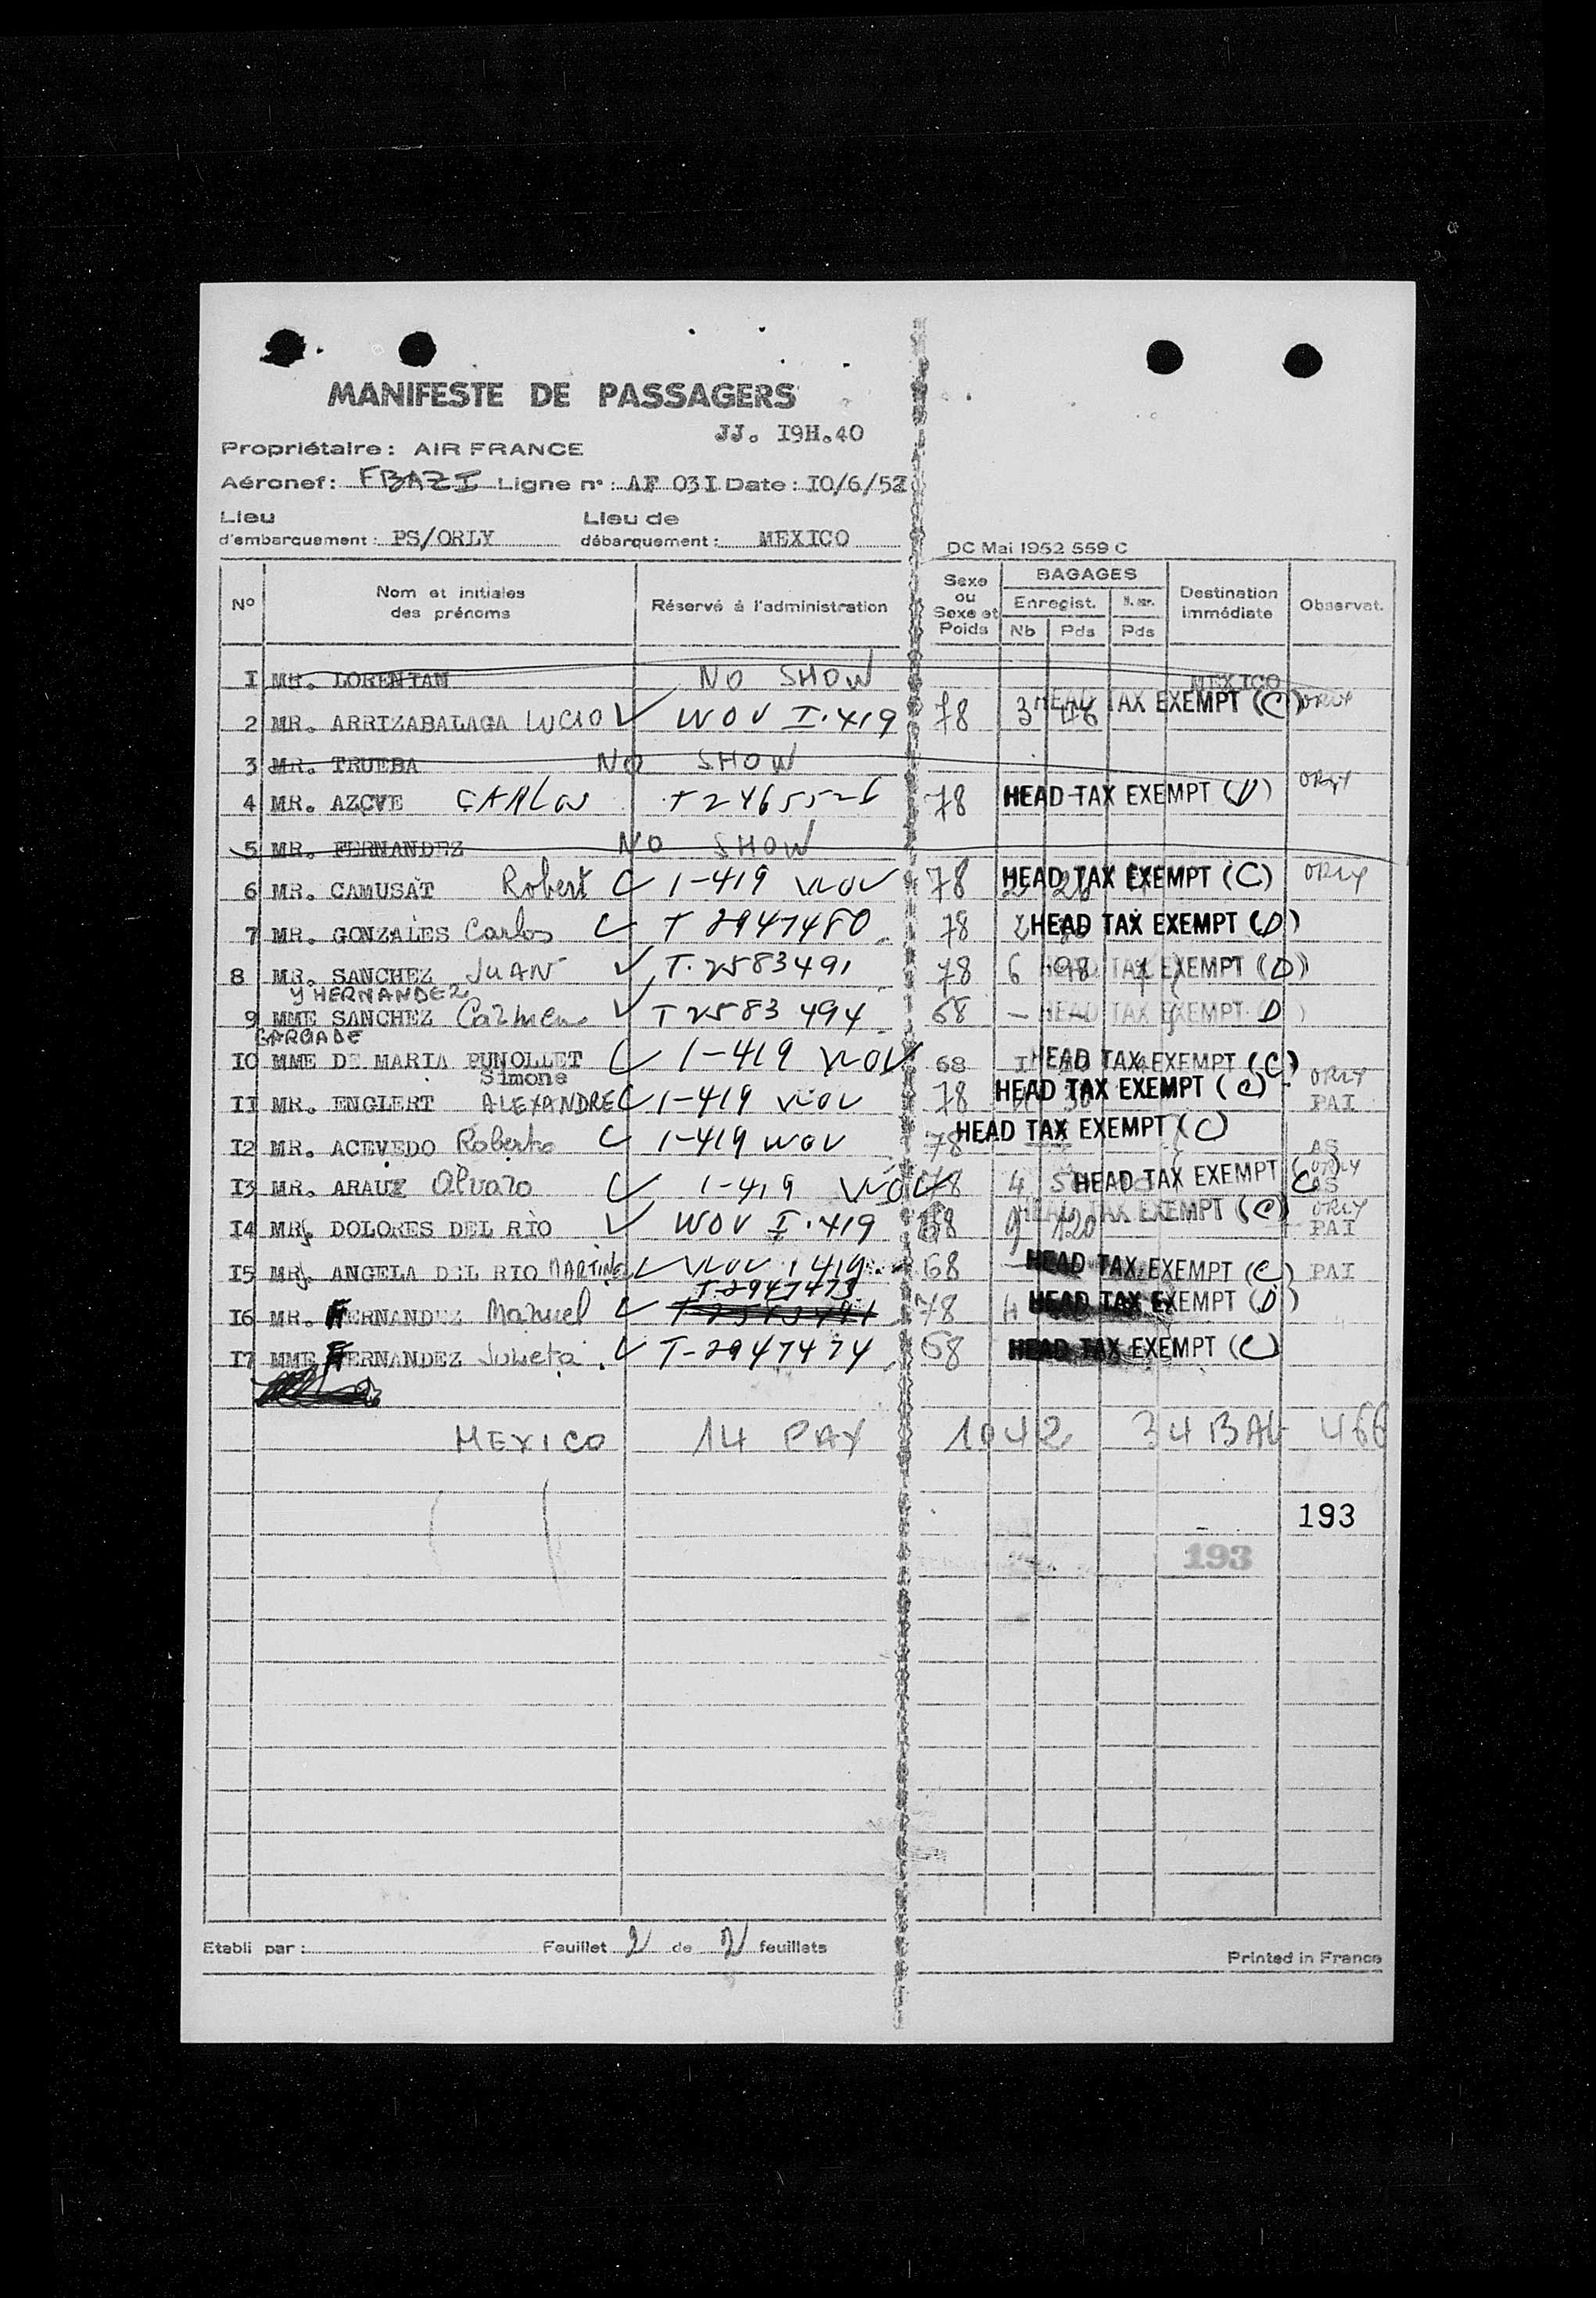 MANIFESTE DE PASSAGERS
JJ. I9H.40
Propriétaire: AIR FRANCE
Aéronef: FBAZI Ligne n°: AF 03I Date: I0/6/52
Lieu d'embarquement: PS/ORLY Lieu de débarquement: MEXICO
DC Mai 1952 559 C
N° Nom et initiales des prénoms Réservé à l'administration Sexe ou Sexe et Poids BAGAGES Enregist. Nb Pds Pds Destination immédiate Observat.
I MR. LORENTAN NO SHOW MEXICO
2 MR. ARRIZABALAGA LUCIO WOV I.419 78 3 HEAD TAX EXEMPT (C) ORLY
3 MR. TRUEBA NO SHOW
4 MR. AZCVE CARLOS T2465526 78 HEAD TAX EXEMPT (D) ORLY
5 MR. FERNANDEZ NO SHOW
6 MR. CAMUSAT Robert 1-419 WOV 78 2 HEAD TAX EXEMPT (C) ORLY
7 MR. GONZALES Carlos T 2947480 78 2 HEAD TAX EXEMPT (D)
8 MR. SANCHEZ JUAN T.2583491 78 6 98 HEAD TAX EXEMPT (D)
Y HERNANDEZ
9 MME SANCHEZ Carmen T2583494 68 - HEAD TAX EXEMPT D
GARGADE
I0 MME DE MARIA PUNOLLET 1-419 WOV 68 I HEAD TAX EXEMPT (C)
Simone
II MR. ENGLERT ALEXANDRE 1-419 WOV 78 HEAD TAX EXEMPT (C) ORLY PAI
I2 MR. ACEVEDO Roberto 1-419 WOV 78 HEAD TAX EXEMPT (C) AS
I3 MR. ARAUZ Alvaro 1-419 WOV 78 4 HEAD TAX EXEMPT (C) ORLY AS
I4 MR DOLORES DEL RIO WOV I.419 68 9 120 HEAD TAX EXEMPT (C) ORLY PAI
I5 MR ANGELA DEL RIO MARTINEZ WOV 1 419 68 HEAD TAX EXEMPT (C) PAI
T.2947473
I6 MR. FERNANDEZ Manuel 78 4 HEAD TAX EXEMPT (D)
I7 MME FERNANDEZ Julieta T-2947474 68 HEAD TAX EXEMPT (C)
MEXICO 14 PAX 1042 34 BAG 466
193
193
Etabli par: Feuillet 2 de 2 feuillets
Printed in France